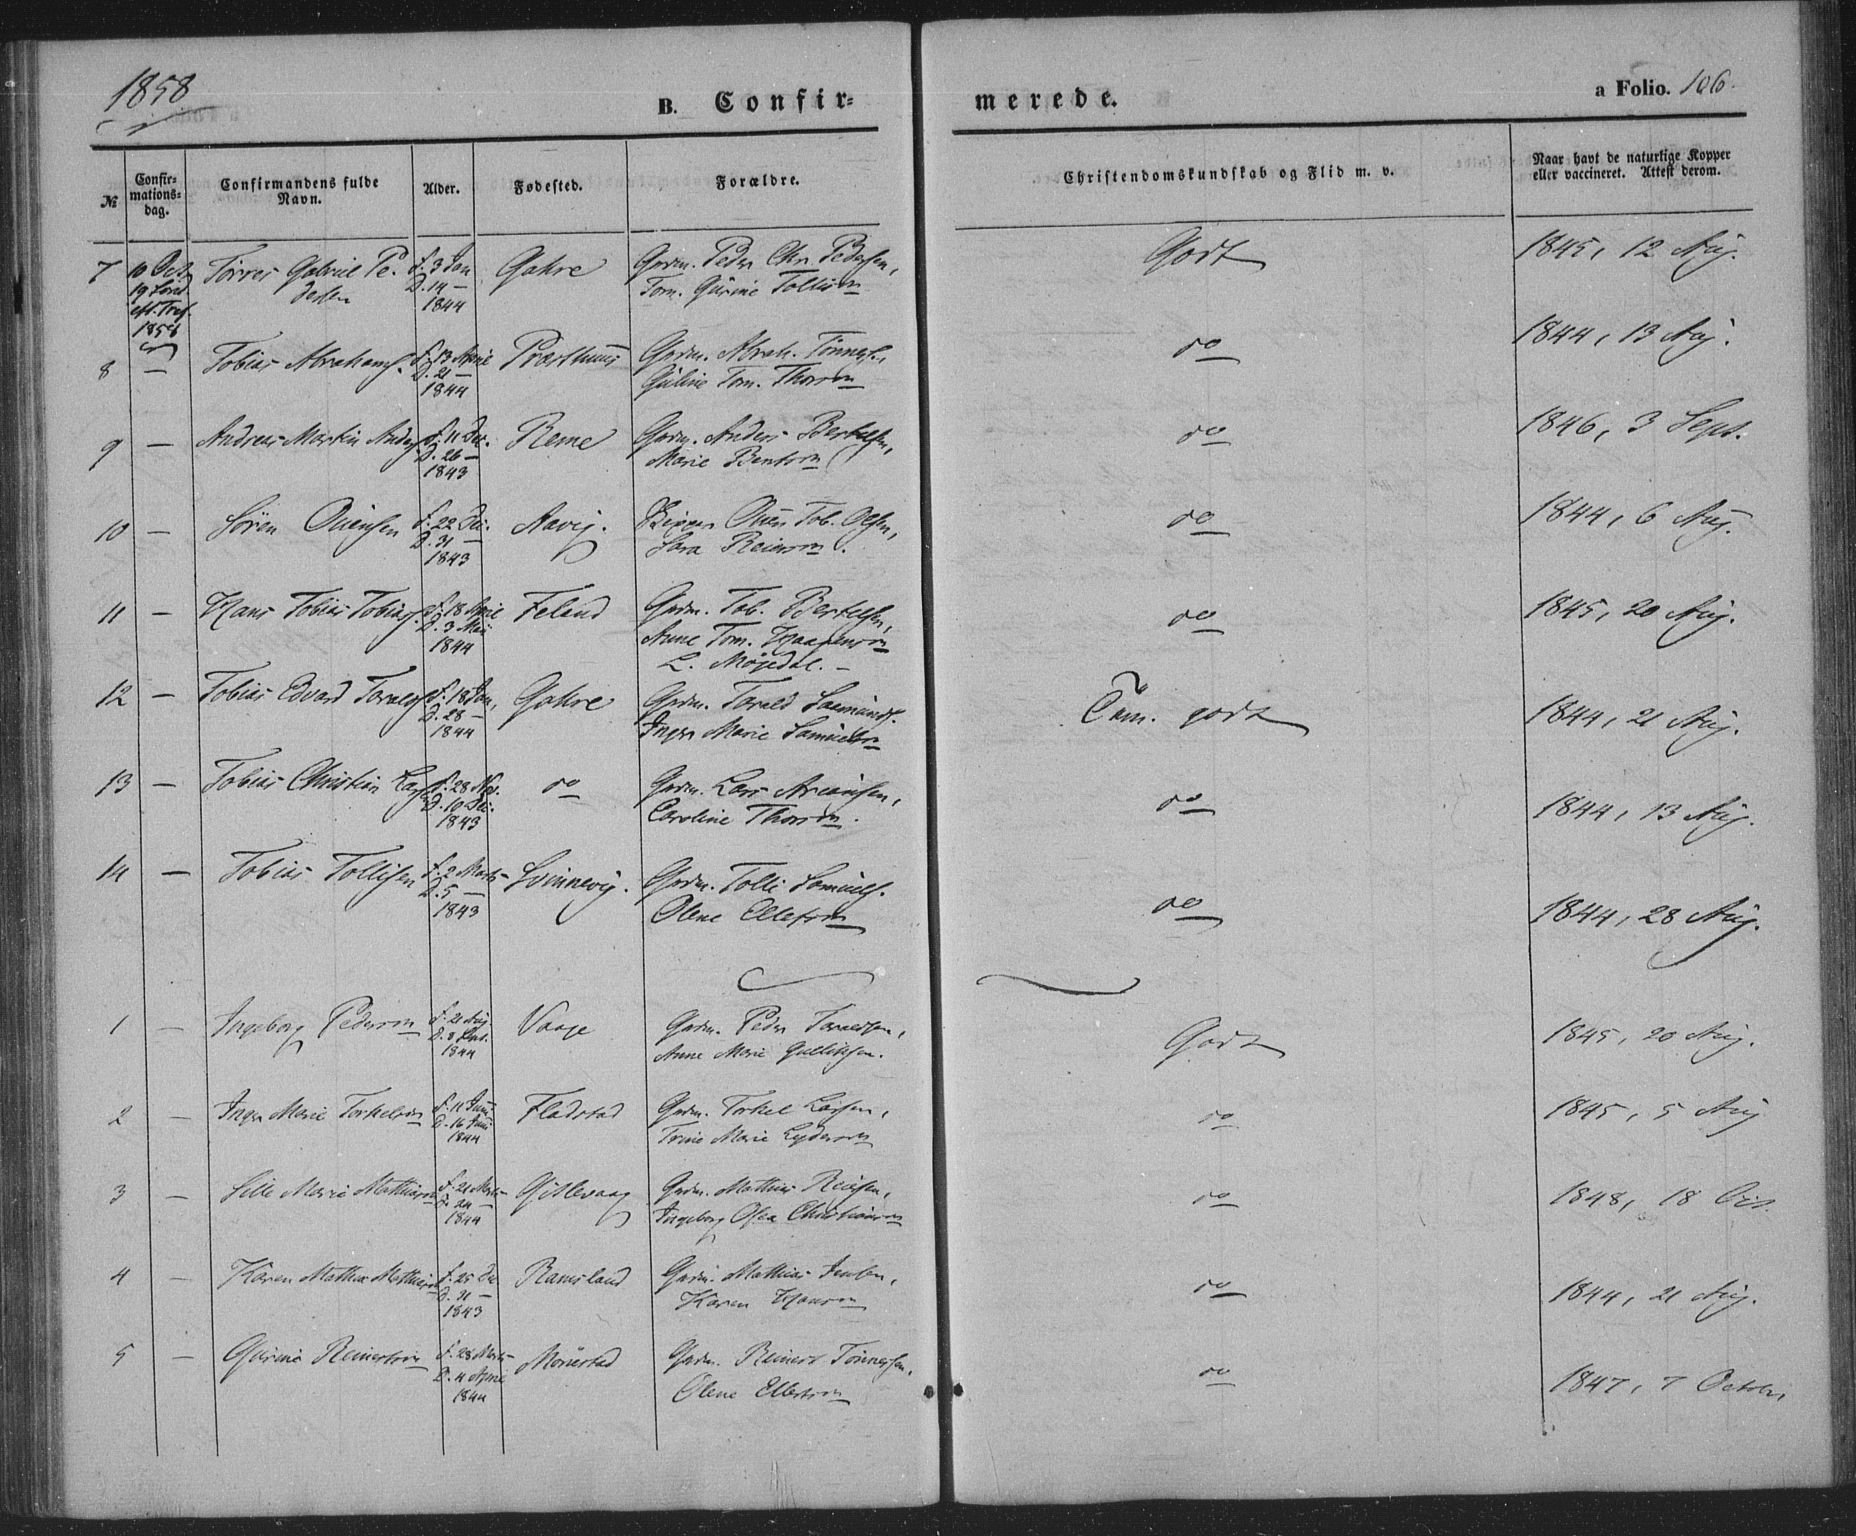 1858
B. Confir=
merede.
a Folio. 106.
№
Confir=
mations=
dag.
Confirmandens fulde
Navn.
Alder.
Fødested.
Forældre.
Christendomskundskab og Flid m. v.
Naar havt de naturlige Kopper
eller vaccineret. Attest derom.
7 10 Oct. 19 Sønd. eft. Tref. 1858 Tørres Gabriel Pe- dersen f. 3 Jan D. 14 — 1844 Gahre Grdm. Peder Chr. Pedersen, Tom. Gurine Tollisdn Godt 1845, 12 Aug.
8 — Tobias Abrahams. f. 13 April D. 21 — 1844 Præsthuus Grdm. Abrah. Tønness., Guline Tom. Thorsdn do 1844, 13 Aug.
9 — Andreas Martin Anders. f. 11 Dec. D. 26 — 1843 Reme Grdm. Anders Bertelsen, Marie Bentsdn do 1846, 3 Sept.
10 — Sören Ouensen f. 22 Dec. D. 31 — 1843 Aavig. Ouen Tob. Olsen, Sara Reiersdn. do 1844, 6 Aug.
11 — Hans Tobias Tobias. f. 18 April D. 3 Mai 1844 Feland Grdm. Tob. Bertelsen, Anne Tom. Haagensdn L. Møgedal. — do 1845, 20 Aug.
12 — Tobias Edvard Taralds. f. 18 Jan. D. 28 — 1844 Gahre Grdm. Tarald Saamunds. Inger Marie Samuelsdn Tem. godt 1844, 21 Aug.
13 — Tobias Christian Lars. f. 28 Nov. D. 10 Dec. 1843 do Grdm. Lars Areansen, Caroline Thorsdn. do 1844, 13 Aug.
14 — Tobias Tollisen f. 2 Marts D. 5 — 1843 Svinnevig. Grdm. Tolli Samuels. Olene Ellefsdn do 1844, 28 Aug.
1 — Ingeborg Pedersdn f. 21 Aug. D. 8 Sept. 1844 Vaage Grdm. Peder Taraldsen, Anne Marie Gulliksen. Godt 1845, 20 Aug.
2 — Inger Marie Torkelsdn f. 11 Juni D. 16 Juni 1844 Fladstad Grdm. Torkel Larsen, Trine Marie Lydersdn do 1845, 5 Aug
3 — Sille Marie Mathiasdn f. 21 Marts D. 24 — 1844 Gitlevaag Grdm. Mathias Reiersen, Ingeborg Olea Christiansdn do 1848, 18 Oct.
4 — Karen Mathea Mathiasdn f. 25 Dec D. 31 — 1843 Ramsland Grdm. Mathias Jensen, Karen Hansdn do 1844, 21 Aug.
5 — Gurine Reinertsdn f. 28 Marts D. 4 April 1844 Mønestad Grdm. Reinert Tønnessen, Olene Ellertsdn do 1847, 7 October